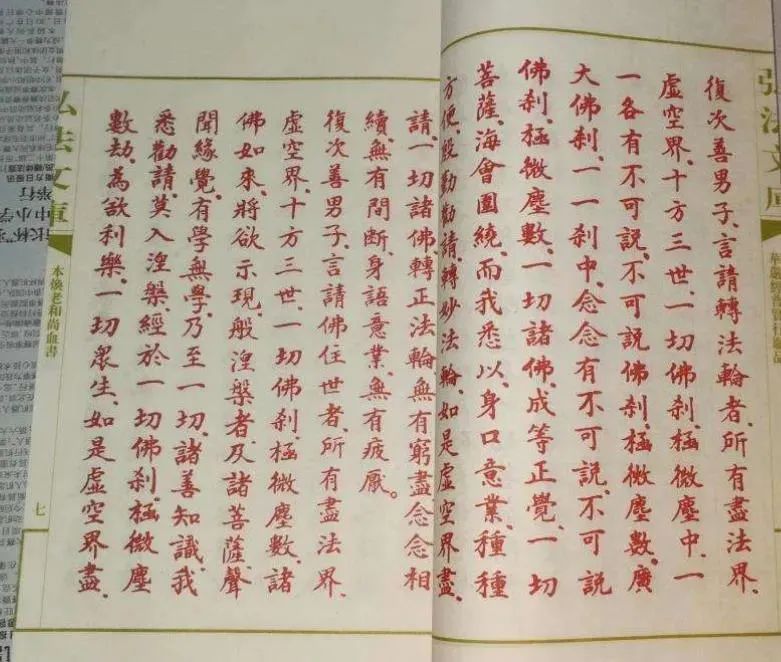 弘法文庫
復次善男子、言請轉法輪者、所有盡法界、
虛空界、十方三世、一切佛刹、極微塵中、一
一各有不可說、不可說佛刹、極微塵數、廣
大佛刹、一一刹中、念念有不可說、不可說
佛刹、極微塵數、一切諸佛、成等正覺、一切
菩薩、海會圍繞、而我悉以、身口意業、種種
方便、殷勤勸請、轉妙法輪、如是虛空界盡、
請、一切諸佛、轉正法輪、無有窮盡、念念相
續、無有間斷、身語意業、無有疲厭。
復次善男子、言請佛住世者、所有盡法界、
虛空界、十方三世、一切佛刹、極微塵數、諸
佛如來、將欲示現、般涅槃者、及諸菩薩、聲
聞緣覺、有學無學、乃至一切、諸善知識、我
悉勸請、莫入涅槃、經於一切佛刹、極微塵
數劫、為欲利樂、一切眾生、如是虛空界盡、
弘法文庫
本煥老和尚血書
七
举行
中小学